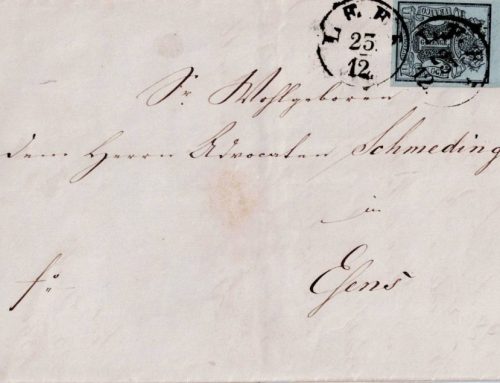 LEER
23
12
Sr Wohlgeboren
dem Herrn Advocaten Schmeding
in
Esens
fo